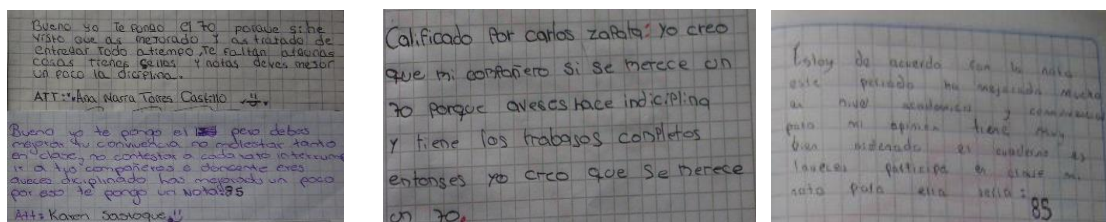 Bueno yo Te Pongo el 70 porque si he
visto que as mejorado y as tratado de
entregar Todo atiempo, Te faltan algunas
cosas tienes sellos y notas deves mejor
un poco la diciplina.
ATT: Ana Maria Torres Castillo
Bueno yo te pongo el pero debes
mejorar tu convivencia no molestar tanto
en clase, no contestar a cada rato interrum
ir a tus compañeros o docente eres
aveces diciplinado has mejorado un poco
por eso te pongo un nota: 85
Att: Karen
Calificado Por carlos zapata: yo creo
que mi compañero si se merece un
70 porque aveses hace indiciplina
y tiene los trabajos completos
entonses yo creo que se merece
un 70.
Estoy de acuerdo con la nota
este periodo ha mejorado mucho
a nivel academico y convivencia
para mi opinion tiene muy
bien ordenado el cuaderno es
participa en clase mi
nota para ella seria:
85